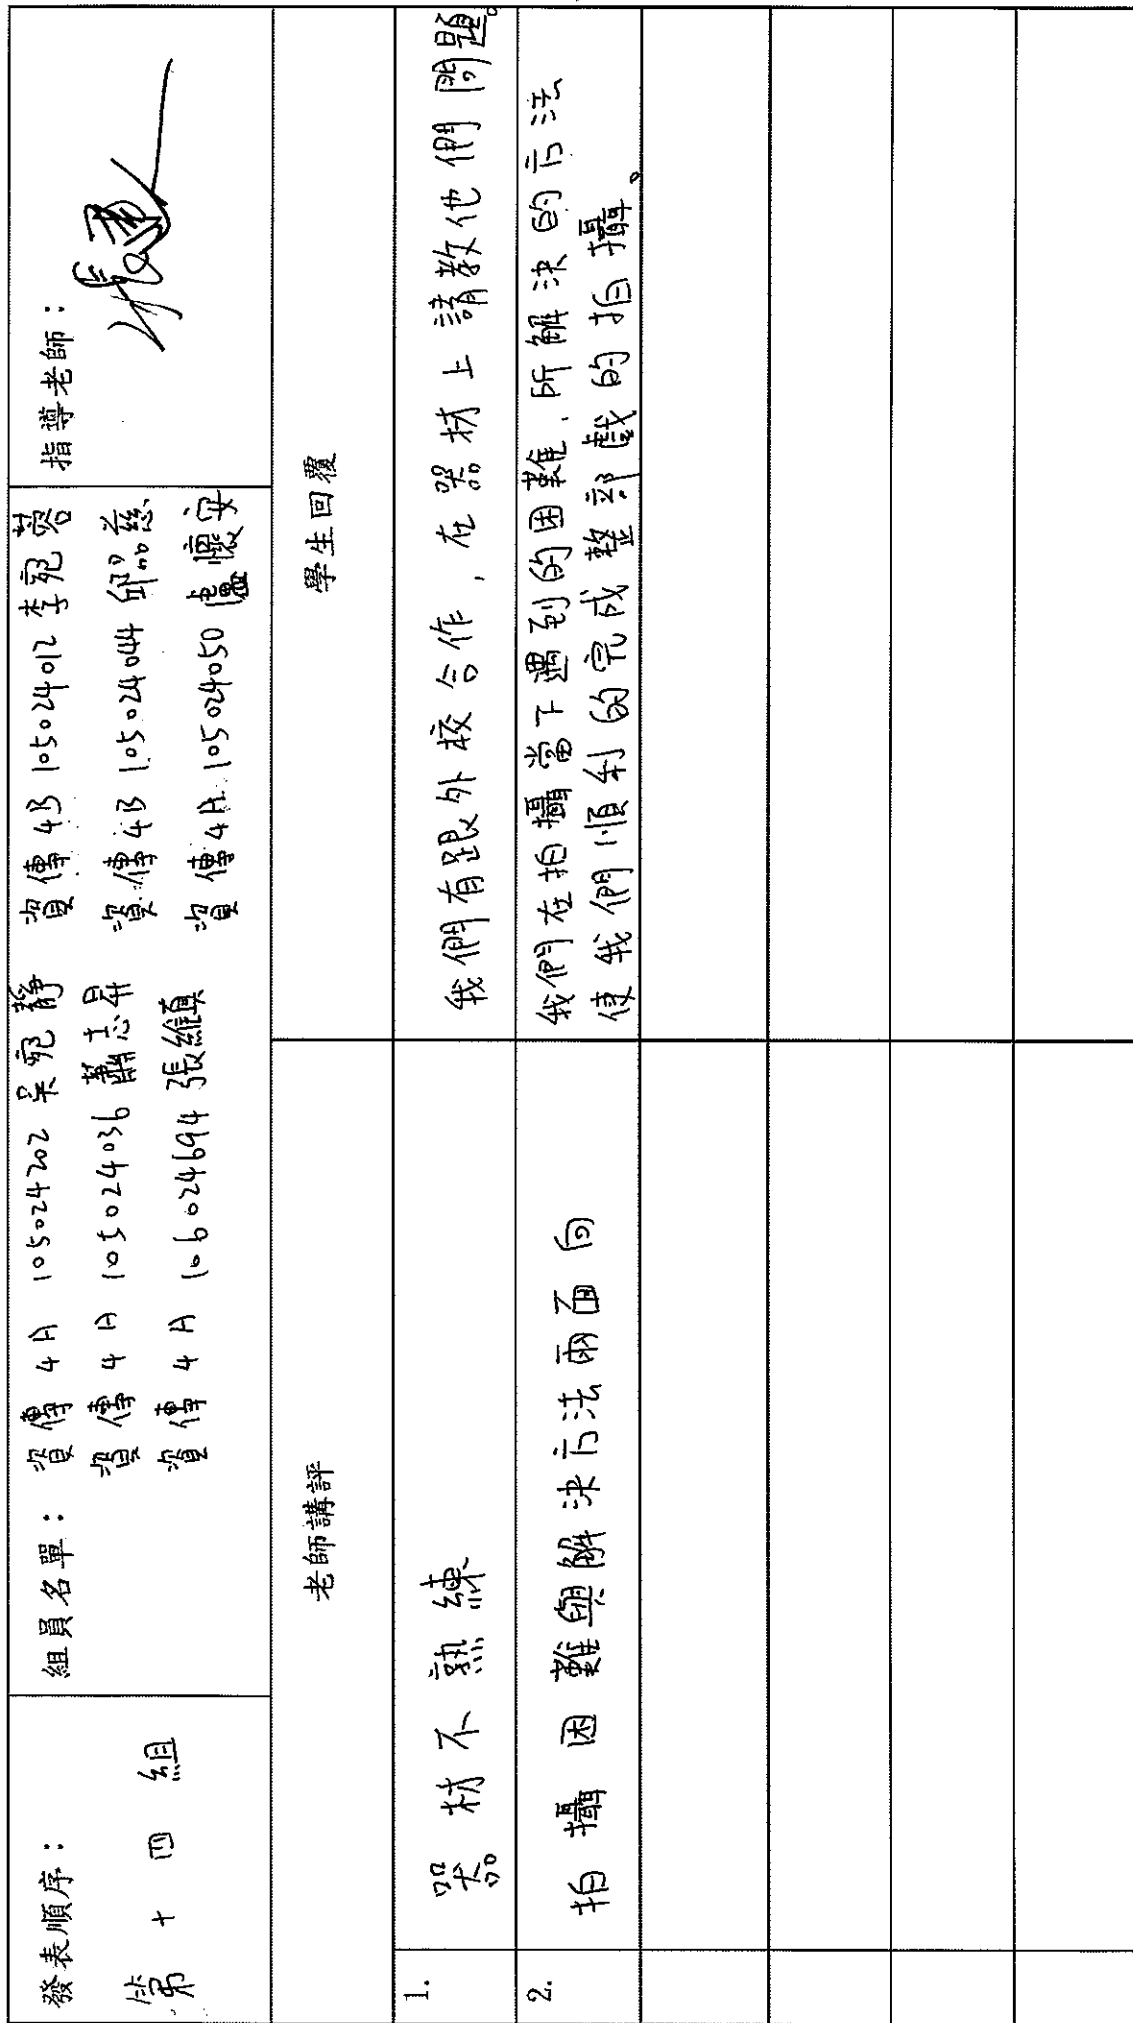 發表順序：
第十四組
組員名單：
資傳4A 105024202 吳宛靜 資傳4B 105024012 李宛蓉
資傳4A 105024036 蕭志昇 資傳4B 105024044 邱品慈
資傳4A 106024694 張維真 資傳4A 105024050 盧懷安
指導老師：
老師講評 學生回覆
1. 器材不熟練 我們有跟外校合作，在器材上請教他們問題。
2. 拍攝困難與解決方法兩面向 我們在拍攝當下遇到的困難，所解決的方法
使我們順利的完成整部戲的拍攝。